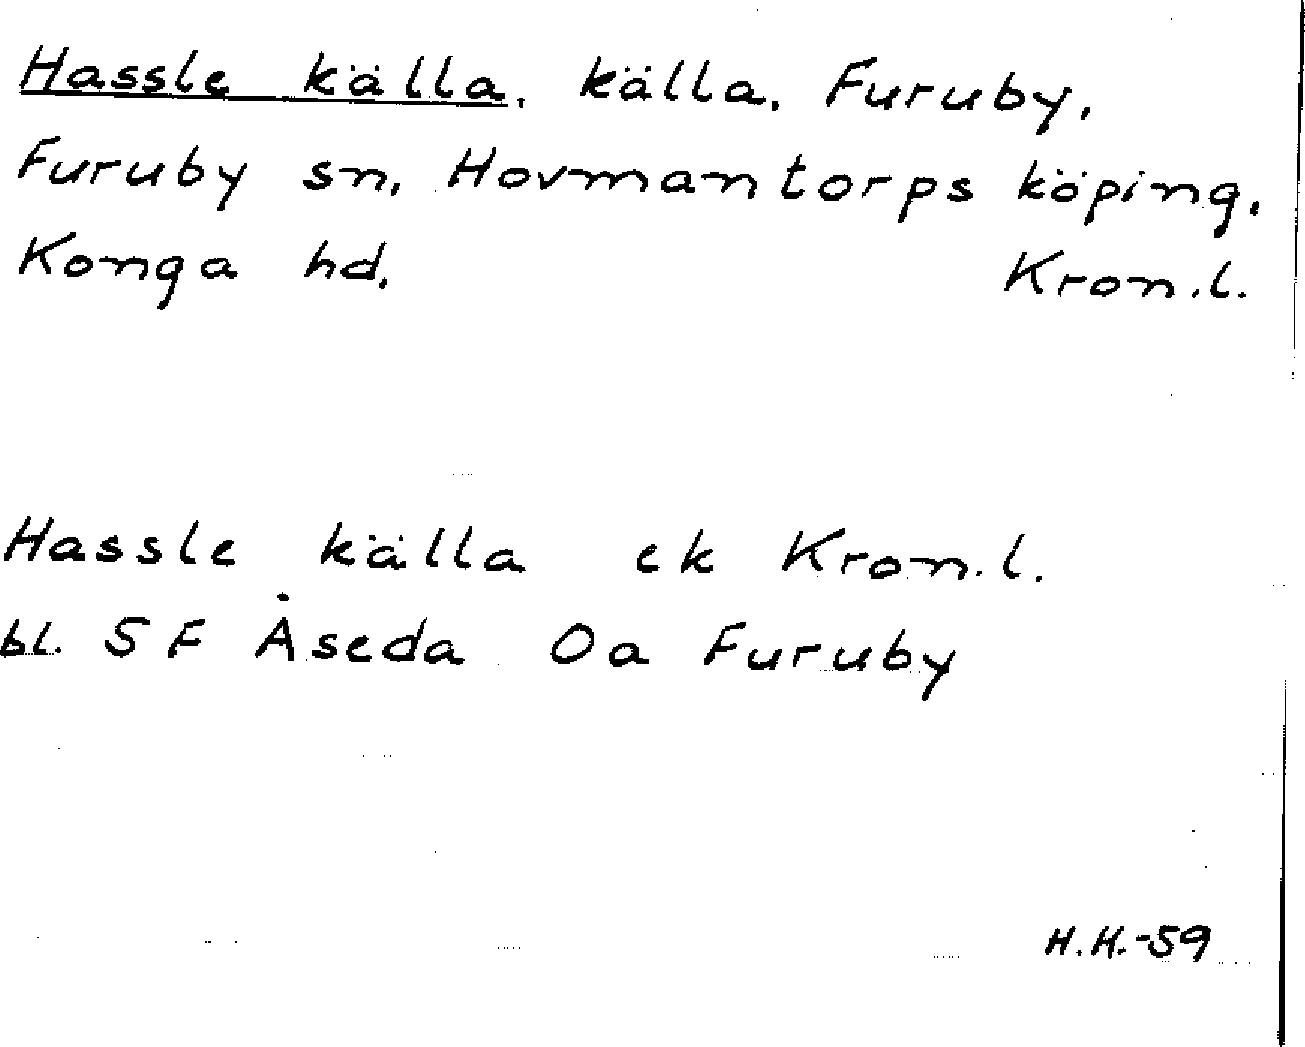 Hassle källa, källa, Furuby,
Furuby sn, Hovmantorps köping,
Konga hd. Kron.l.
Hassle källa ek Kron.l.
bl. 5F Åseda Oa Furuby
H.H.-59